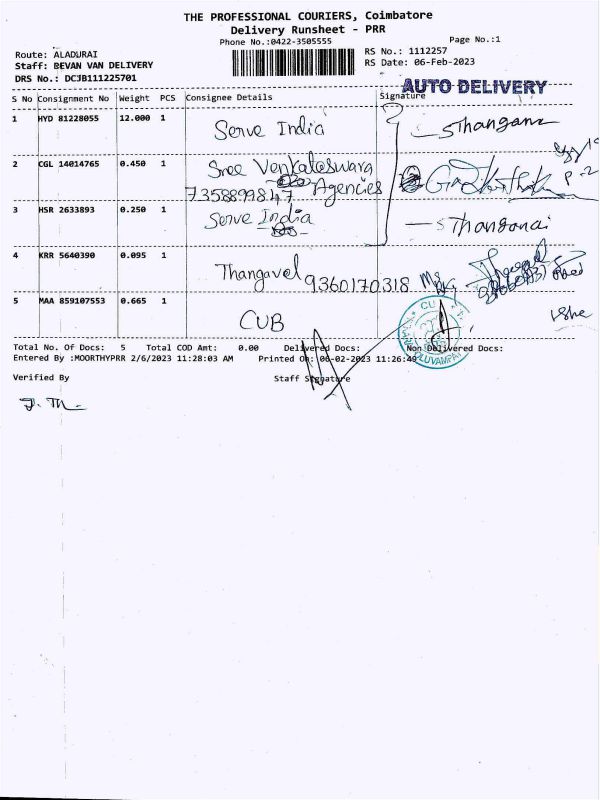 THE PROFESSIONAL COURIERS, Coimbatore
Delivery Runsheet - PRR
Phone No.:0422-3505555 Page No.:1
Route: ALADURAI RS No.: 1112257
Staff: BEVAN VAN DELIVERY RS Date: 06-Feb-2023
DRS No.: DCJB111225701 AUTO DELIVERY
S No Consignment No Weight PCS Consignee Details Signature
1 HYD 81228055 12.000 1 Serve India
2 CGL 14014765 0.450 1 Sree Venkateswara Agencies
7358899847
3 HSR 2633893 0.250 1 Serve India
4 KRR 5640390 0.095 1 Thangavel 9360170318
5 MAA 859107553 0.665 1 CUB
Total No. Of Docs: 5 Total COD Amt: 0.00 Delivered Docs: Non Delivered Docs:
Entered By :MOORTHYPRR 2/6/2023 11:28:03 AM Printed On: 06-02-2023 11:26:49
Verified By Staff Signature